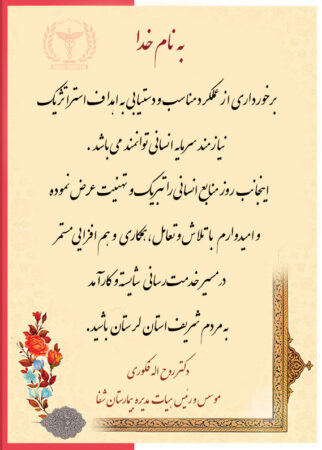 به نام خدا
برخورداری از عملکرد مناسب و دستیابی به اهداف استراتژیک
نیازمند سرمایه انسانی توانمند می باشد .
اینجانب روز منابع انسانی را تبریک و تهنیت عرض نموده
و امیدوارم با تلاش و تعامل ، همکاری و هم افزایی مستمر
در مسیر خدمت رسانی شایسته و کارآمد
به مردم شریف استان لرستان باشید .
دکتر روح اله فکوری
موسس و رئیس هیات مدیره بیمارستان شفا